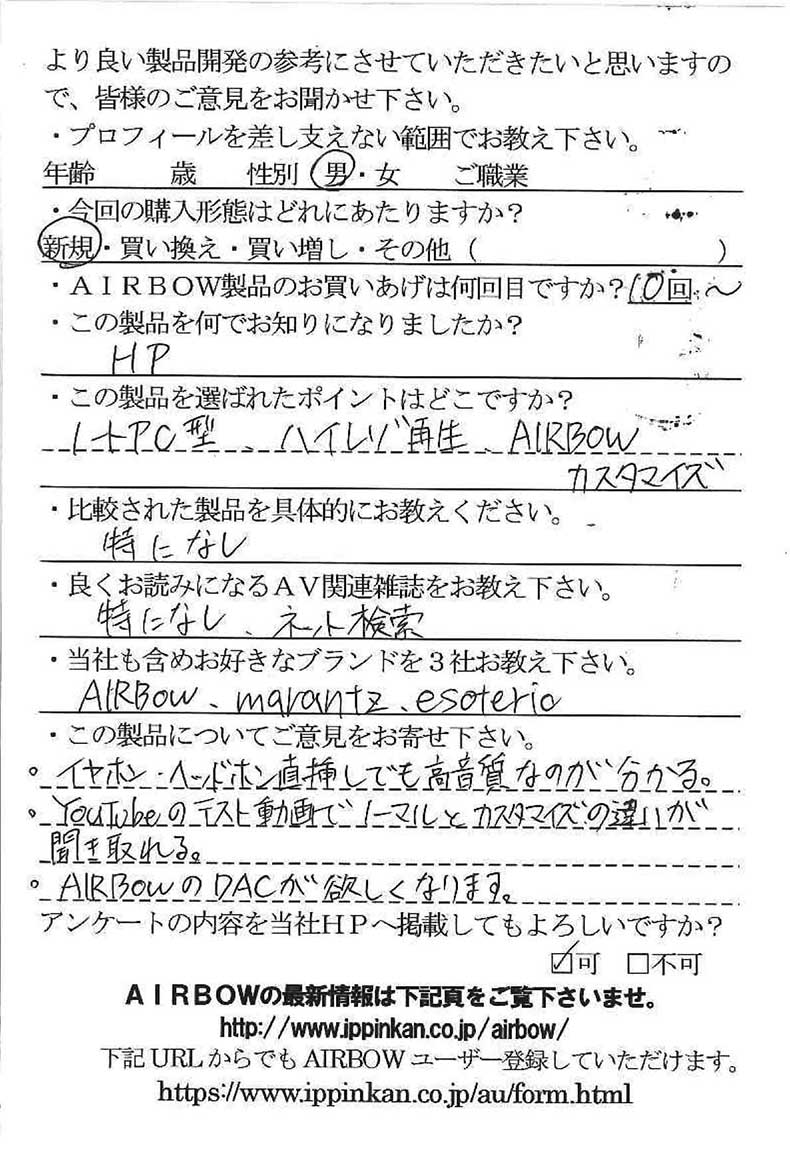 より良い製品開発の参考にさせていただきたいと思いますの
で、皆様のご意見をお聞かせ下さい。
・プロフィールを差し支えない範囲でお教え下さい。
年齢 歳 性別 男・女 ご職業
・今回の購入形態はどれにあたりますか？
新規・買い換え・買い増し・その他（ ）
・ＡＩＲＢＯＷ製品のお買いあげは何回目ですか？10回～
・この製品を何でお知りになりましたか？
HP
・この製品を選ばれたポイントはどこですか？
ノートPC型、ハイレゾ再生、AIRBOW
カスタマイズ
・比較された製品を具体的にお教えください。
特になし
・良くお読みになるＡＶ関連雑誌をお教え下さい。
特になし、ネット検索
・当社も含めお好きなブランドを３社お教え下さい。
AIRBOW、marantz、esoteric
・この製品についてご意見をお寄せ下さい。
。イヤホン・ヘッドホン直挿しでも高音質なのが分かる。
。YouTubeのテスト動画でノーマルとカスタマイズの違いが
聞き取れる。
。AIRBOWのDACが欲しくなります。
アンケートの内容を当社ＨＰへ掲載してもよろしいですか？
☑可 □不可
ＡＩＲＢＯＷの最新情報は下記頁をご覧下さいませ。
http://www.ippinkan.co.jp/airbow/
下記 URL からでも AIRBOW ユーザー登録していただけます。
https://www.ippinkan.co.jp/au/form.html